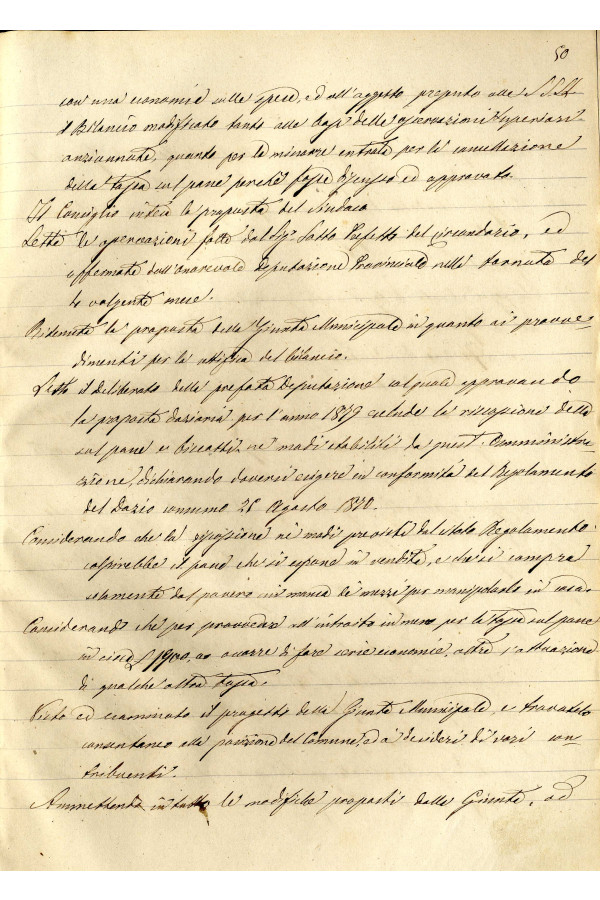 50
con una economia sulle spese, ed all'oggetto preparato alle SS. LL.
il Bilancio modificato tanto alla base delle osservazioni Superiori
anziannate, quanto per le minore entrate per la cancellazione
della tassa sul pane perchè fosse discusso ed approvato.
Il Consiglio intesa la proposta del Sindaco
Lette le osservazioni fatte dal Sig. Sotto Prefetto del circondario, ed
affermate dall'onorevole Deputazione Provinciale nella tornata del
4 volgente mese.
Ritenuta la proposta della Giunta Municipale in quanto ai provve-
dimenti per la rettifica del bilancio.
Letto il deliberato della prefata Deputazione col quale approvando
la proposta daziaria per l'anno 1879 esclude la riscossione della
sul pane e biscotti, ne' modi stabiliti da quest'Amministra-
zione, dichiarando doversi esigere in conformità del Regolamento
del Dazio consumo 25 Agosto 1870.
Considerando che la riscossione ne' modi previsti dal citato Regolamento
colpirebbe il pane che si espone in vendita, e che si compra
solamente dal povero cui manca de' mezzi per manipolarlo in casa.
Considerando che per provvedere all'introito in meno per la tassa sul pane
in circa £ 1900, occorre di fare serie economie, oltre l'attuazione
di qualche altra tassa.
Visto ed esaminato il progetto della Giunta Municipale, e trovatolo
consentaneo alla posizione del Comune, ed a' desideri di vari con-
tribuenti.
Ammettendo in tutto le modifiche proposte dalla Giunta, ad